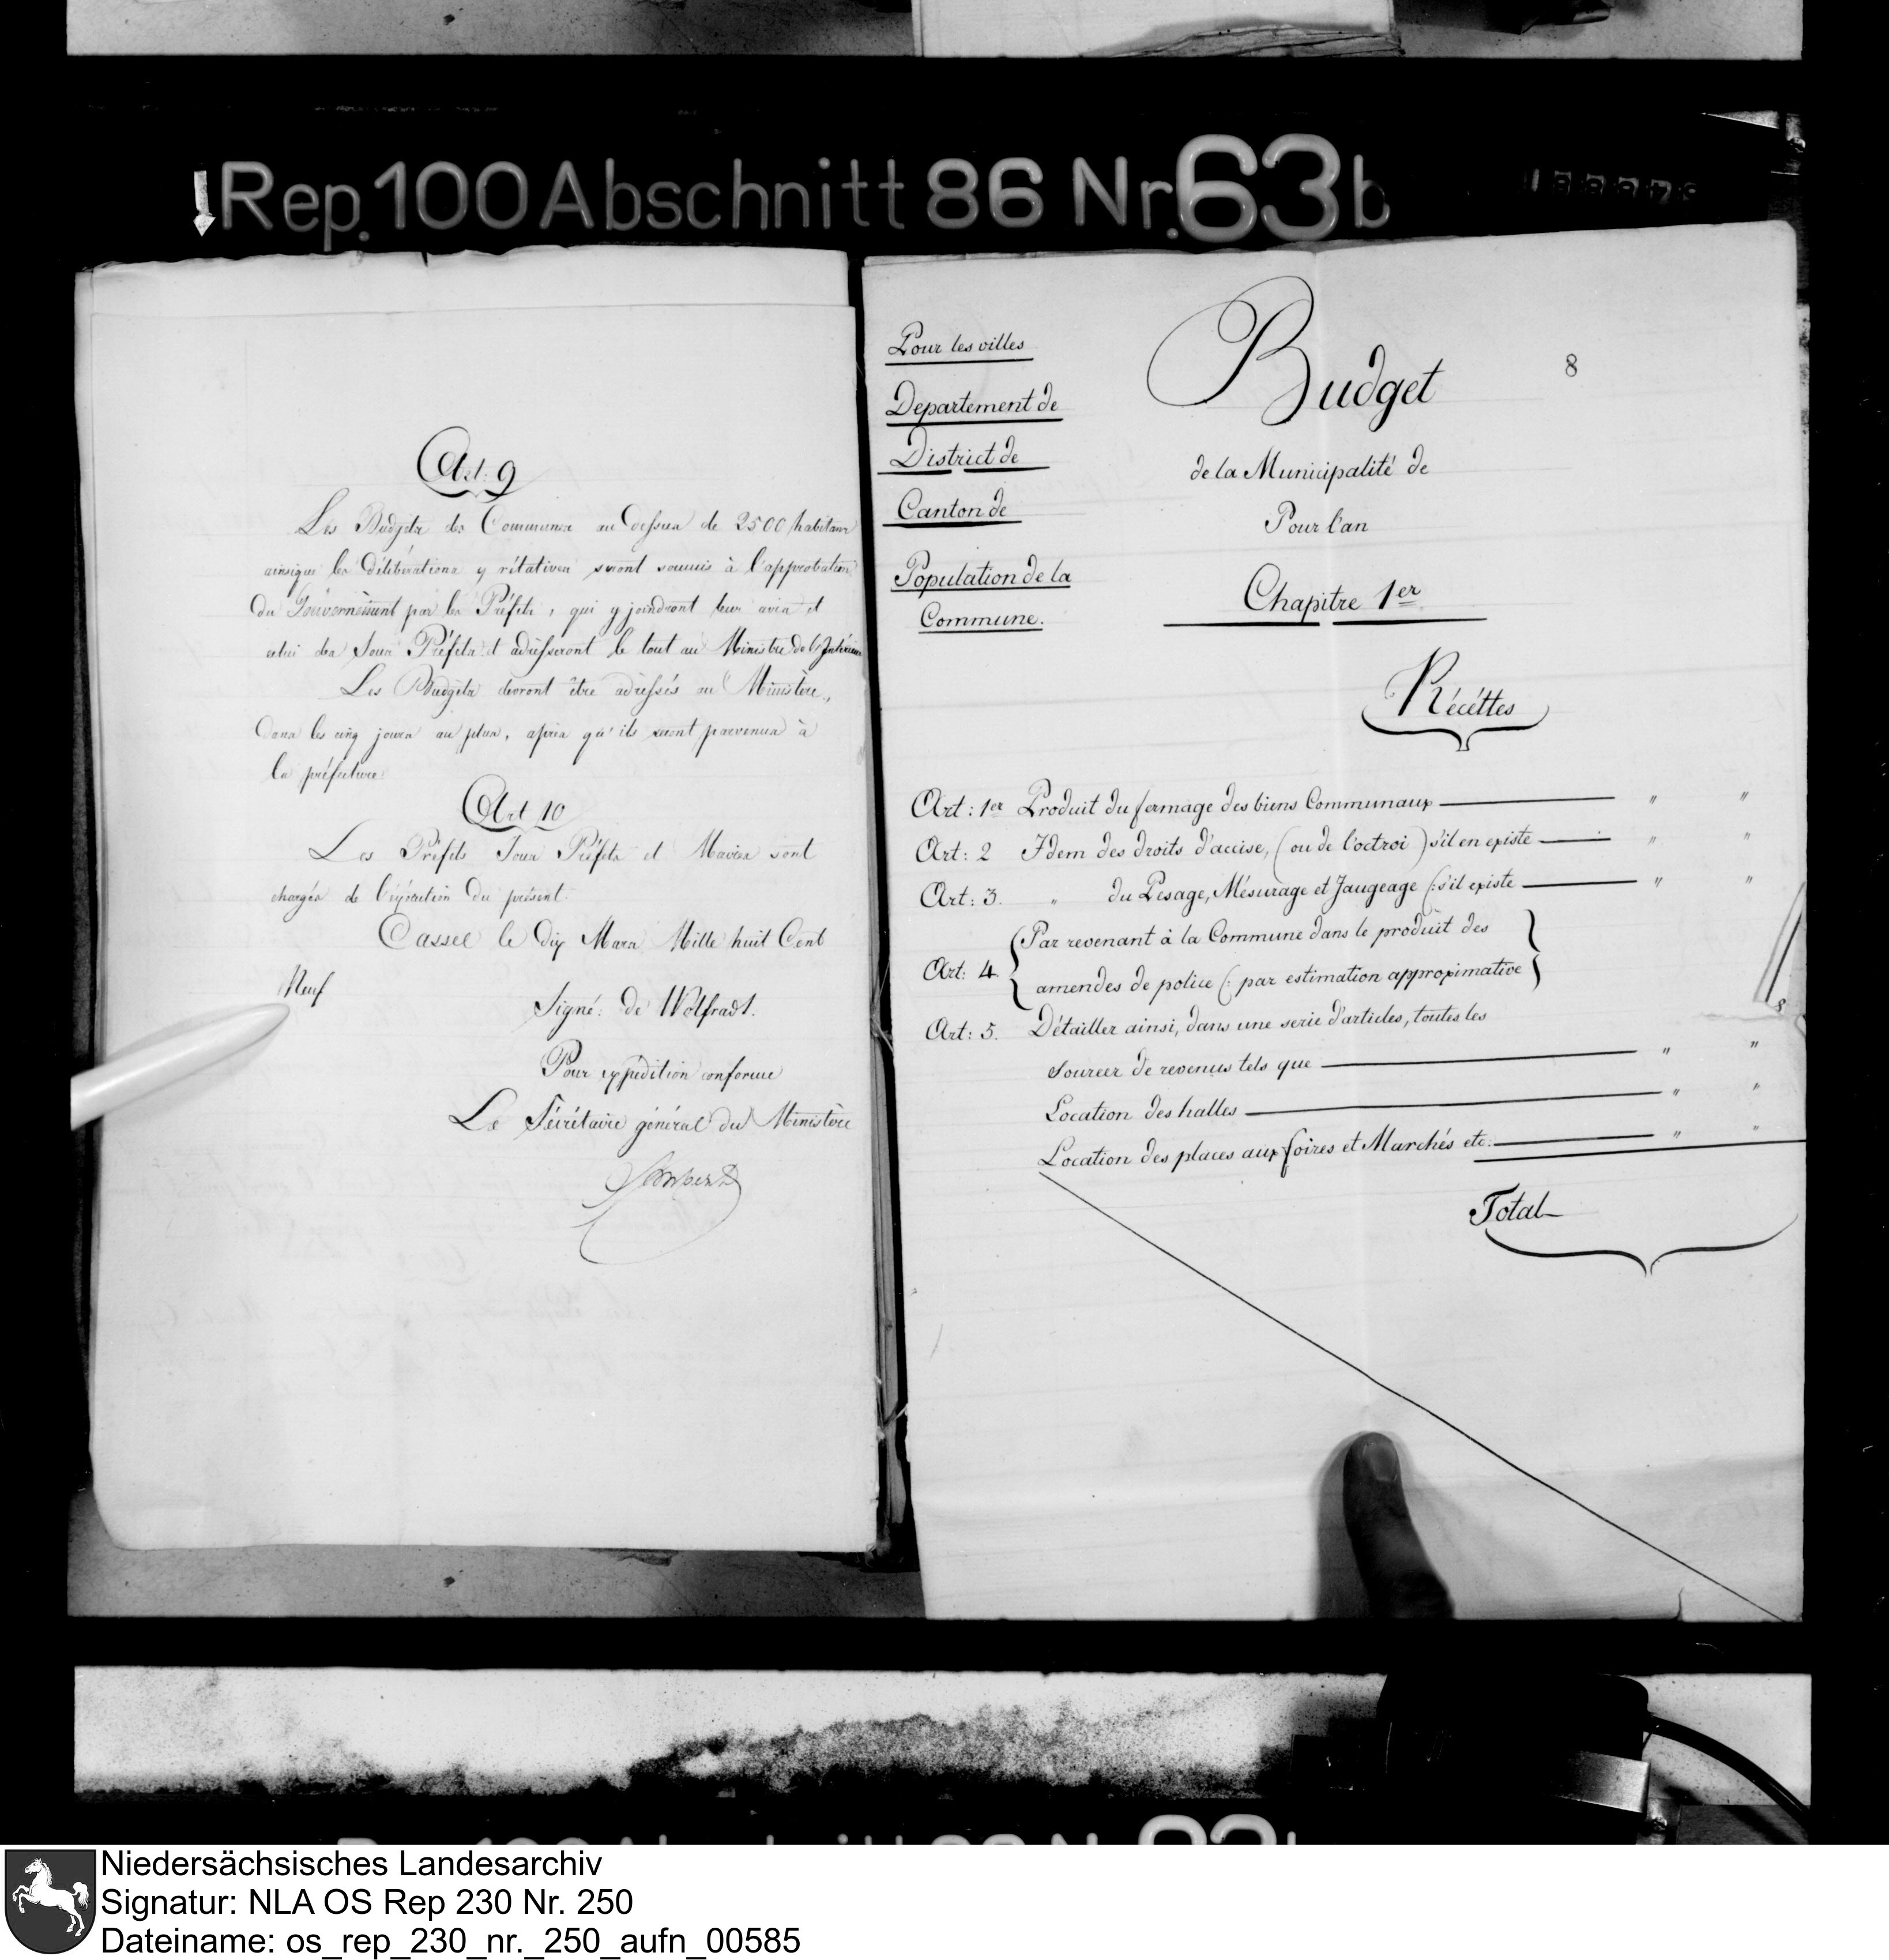 Rep. 100 Abschnitt 86 Nr. 63b
Art: 9
Les Budjets des Communes au dessus de 2500 habitans
ainsique les délibérations y rélatives seront soumis à l'approbation
du Gouvernement par les Préfets, qui y joindront leur avis et
celui des Sous Préfets et adresseront le tout au Ministre de l'Intérieur
Les Budgets devront être adressés au Ministère,
dans les cinq jours au plus, après qu'ils seront parvenus à
la préfecture.
Art 10
Les Préfets Sous Préfets et Maires sont
chargés de l'éxécution du présent.
Cassel le dix Mars Mille huit Cent
Neuf
Signé: de Wolfradt.
Pour expédition conforme
Le Sécrétaire général du Ministère
Pour les villes
Departement de
District de
Canton de
Population de la
Commune.
Budget
8
de la Municipalité de
Pour l'an
Chapitre 1er
Récéttes
Art: 1er Produit du fermage des biens Communaux " "
Art: 2 Idem des droits d'accise, (ou de l'octroi) s'il en existe " "
Art: 3. " du Pesage, Mésurage et Jaugeage (: s'il existe " "
Art: 4 Par revenant à la Commune dans le produit des
amendes de police (: par estimation approximative
Art: 5. Détailler ainsi, dans une serie d'articles, toutes les
sources de revenus tels que " "
Location des halles " "
Location des places aux foires et Marchés etc. " "
Total
8
Niedersächsisches Landesarchiv
Signatur: NLA OS Rep 230 Nr. 250
Dateiname: os_rep_230_nr._250_aufn_00585